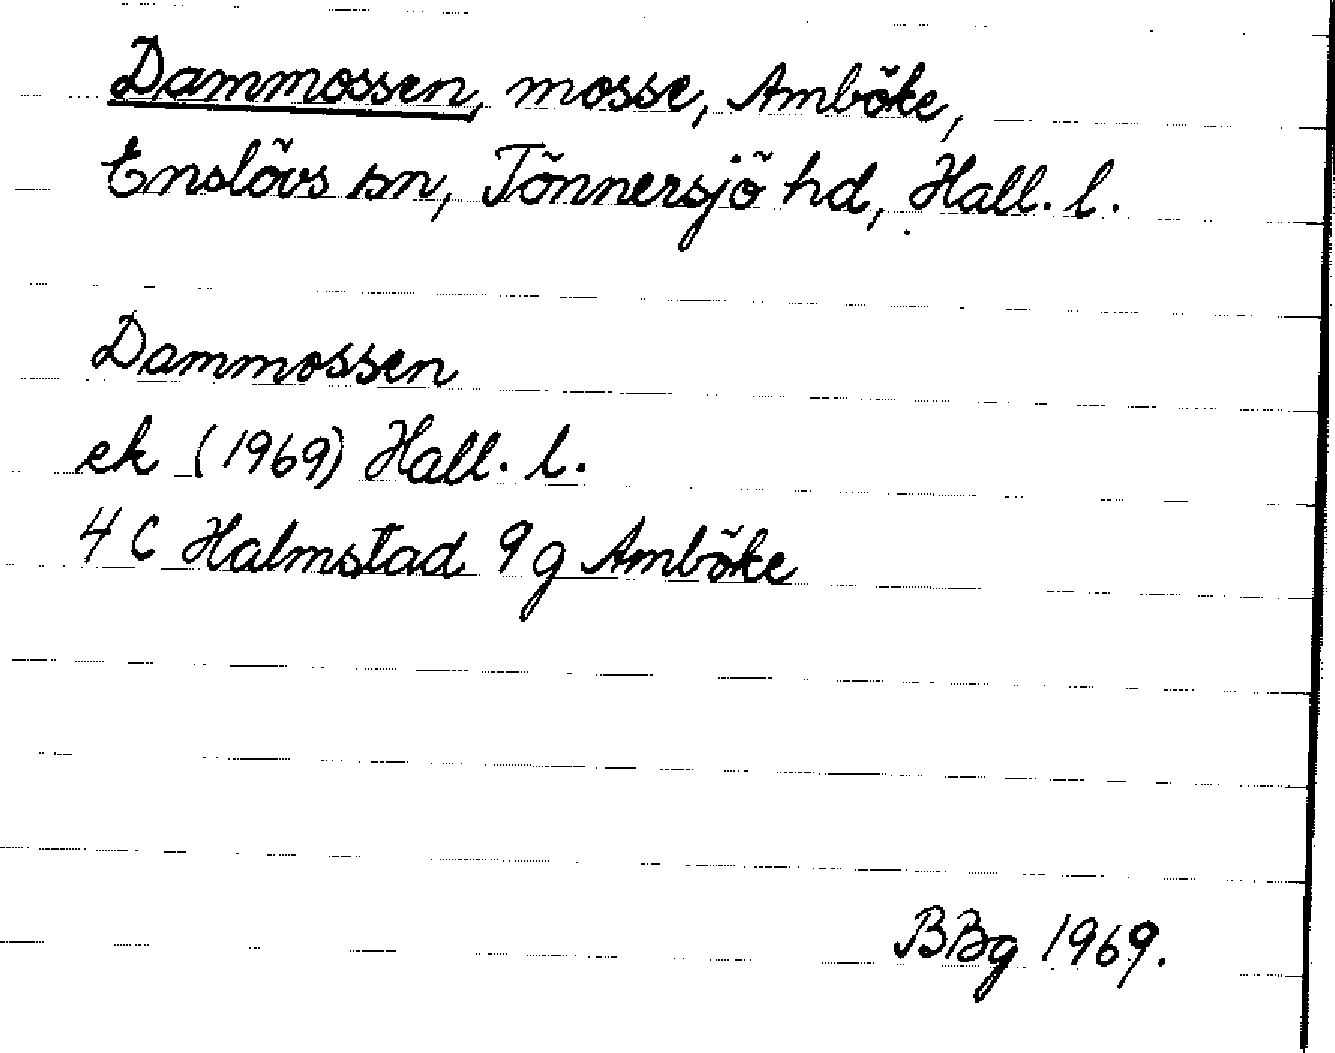 Dammossen, mosse, Amböke,
Enslövs sn, Tönnersjö hd, Hall. l.
Dammossen
ek (1969) Hall. l.
4 C Halmstad 9 g Amböke
BBg 1969.